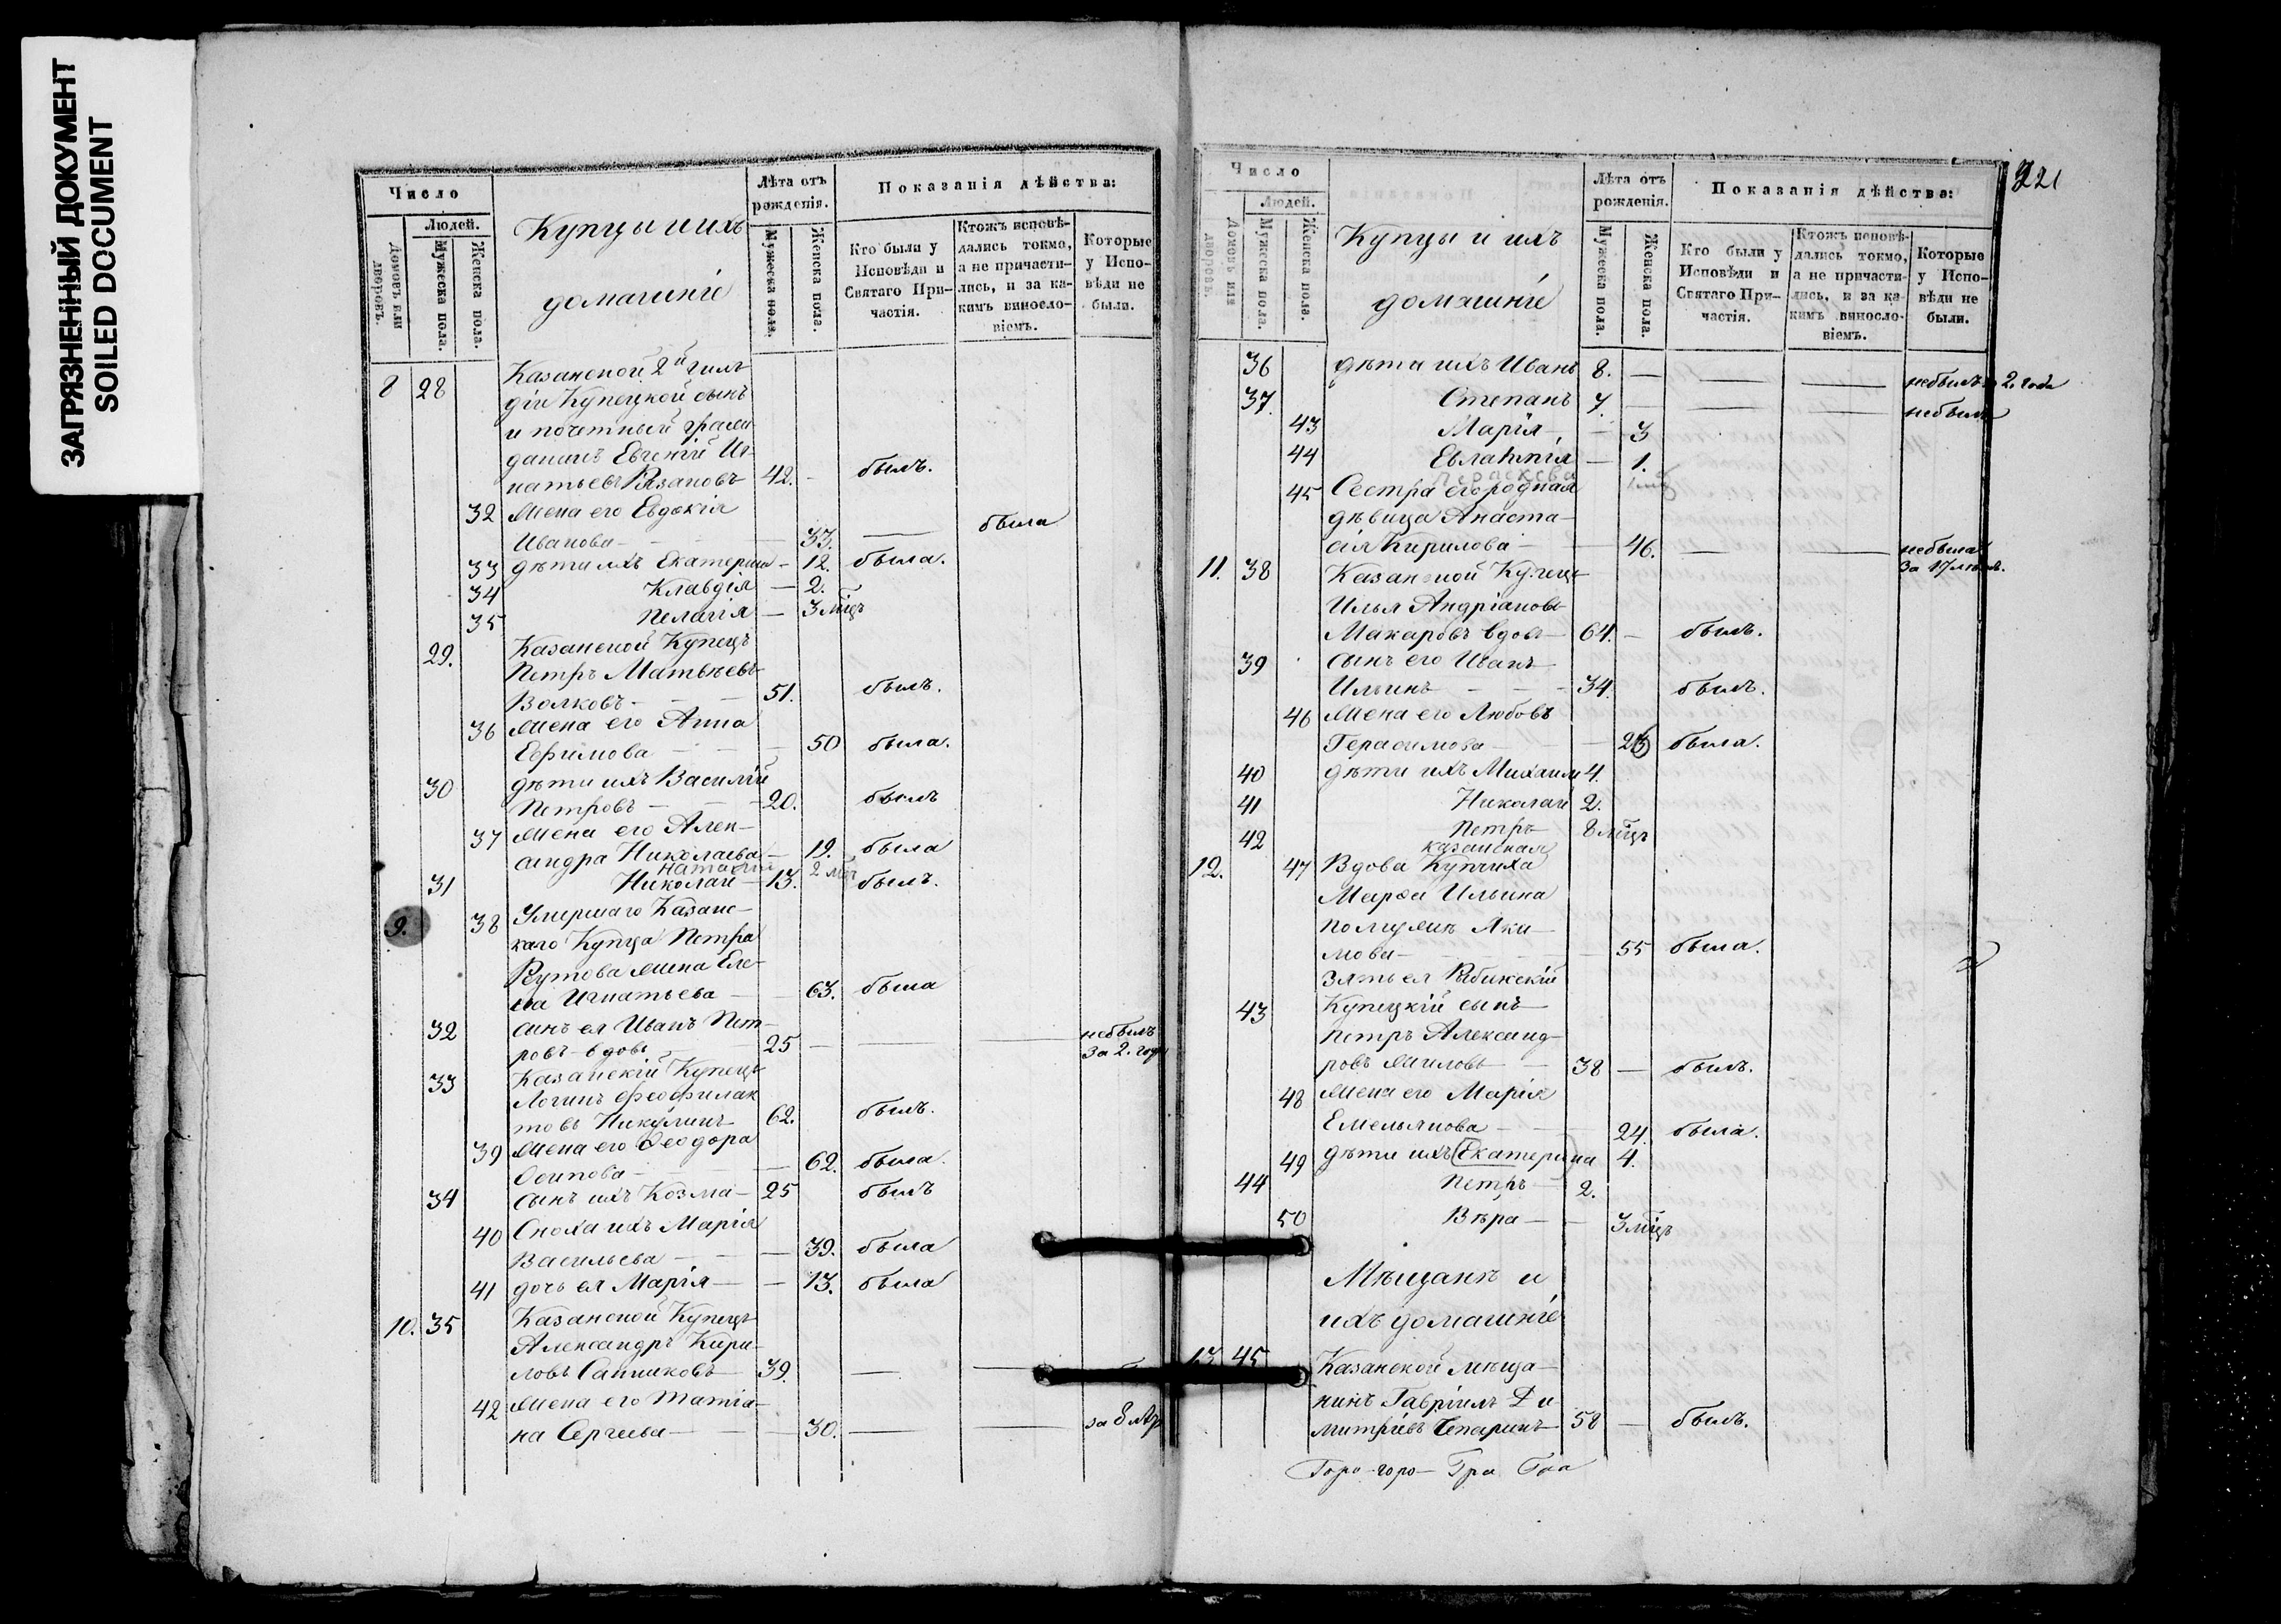 ЗАГРЯЗНЕННЫЙ ДОКУМЕНТ
SOILED DOCUMENT
Число
Людей.
Домовъ или дворовъ.
Мужеска пола.
Женска пола.
Купцы и ихъ
домашнiе
Лѣта отъ рожденiя.
Мужеска пола.
Женска пола.
Показанiя дѣйства:
Кто были у Исповѣди и Святаго Причастiя.
Ктожъ исповѣдались токмо, а не причастились, и за какимъ винословiемъ.
Которые у Исповѣди не были.
8 28 Казанской 2й гиль
дiи Купецкой сынъ
и почетный граж
данинъ Евгенiй Иг
натьевъ Рязановъ 42. - былъ.
32 Жена его Евдокiя
Иванова - 33. — была
33 дѣти ихъ Екатерина - 12. была.
34 Клавдiя — 2.
35 Пелагiя — 3 мѣц
29. Казанской Купецъ
Петръ Матвѣевъ
Волковъ - 51. былъ.
36 Жена его Анна
Ефимова - 50 была.
30 дѣти ихъ Василiй
Петровъ - 20. былъ
37 Жена его Алек-
сандра Николаева - 19. была
Наталiя 2 мѣс
31 Николай - 13. былъ.
9. 38 Умершаго Казанс-
каго Купца Петра
Реутова жена Еле-
на Игнатьева - 63. была
32 сынъ ея Иванъ Пет-
ровъ - вдовъ 25 — небылъ
за 2. года
33 Казанскiй Купецъ
Логинъ Феофилак
товъ Никулинъ 62. былъ.
39 Жена его Феодора
Осипова - 62. была.
34 сынъ ихъ Козма - 25 былъ
40 Сноха ихъ Марiя
Васильева - 39. была
41 дочь ея Марiя - 13. была
10. 35 Казанской Купецъ
Александръ Кири-
ловъ Сапишковъ 39. —
42 Жена его Татiа-
на Сергеева - 30. — за 8 лѣт
321
Число
Людей.
Домовъ или дворовъ.
Мужеска пола.
Женска пола.
Купцы и ихъ
домашнiе
Лѣта отъ рожденiя.
Мужеска пола.
Женска пола.
Показанiя дѣйства:
Кто были у Исповѣди и Святаго Причастiя.
Ктожъ исповѣдались токмо, а не причастились, и за какимъ винословiемъ.
Которые у Исповѣди не были.
36 дѣти ихъ Иванъ 8. — небылъ 2. года
37. Степанъ 7. — небылъ
43 Марiя - 3
44 Евлампiя — 1.
Параскева
45 Сестра его родная
дѣвица Анаста-
сiя Кирилова - 46. — небыла
за 17 лѣтъ.
11. 38 Казанской Купецъ
Илья Андрiановъ
Макаровъ вдовъ 64. - былъ.
39 сынъ его Иванъ
Ильинъ - 34. былъ.
46 Жена его Любовь
Герасимова - 25 была.
40 дѣти ихъ Михаилъ 4.
41 Николай 2.
42 Петръ 8 мѣцъ
казанская
12. 47 Вдова Купчиха
Марфа Ильина
по мужѣ Аки-
мова - 55 была.
Зять ея
43 Купецкiй сынъ
Петръ Александ-
ровъ Миловъ - 38 — былъ.
48 Жена его Марiя
Емельянова - 24. была.
49 дѣти ихъ Екатерина 4.
44 Петръ - 2.
50 Вѣра - 3 мѣцъ
Мѣщанѣ и
ихъ домашнiе
13 45 Казанской мѣща-
нинъ Гаврiилъ Ди
митрiевъ Чепаринъ 58 — былъ.